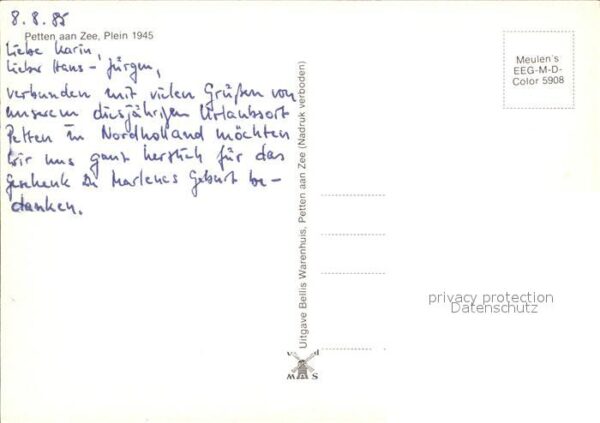 8.8.85
Petten aan Zee, Plein 1945
Liebe Karin,
Lieber Hans-Jürgen,
verbunden mit vielen Grüßen von
unserem diesjährigen Urlaubsort
Petten in Nordholland möchten
wir uns ganz herzlich für das
Geschenk zu Marlenes Geburt be-
danken.
Uitgave Bellis Warenhuis, Petten aan Zee (Nadruk verboden)
Meulen's
EEG-M-D-
Color 5908
privacy protection
Datenschutz
v d
M S